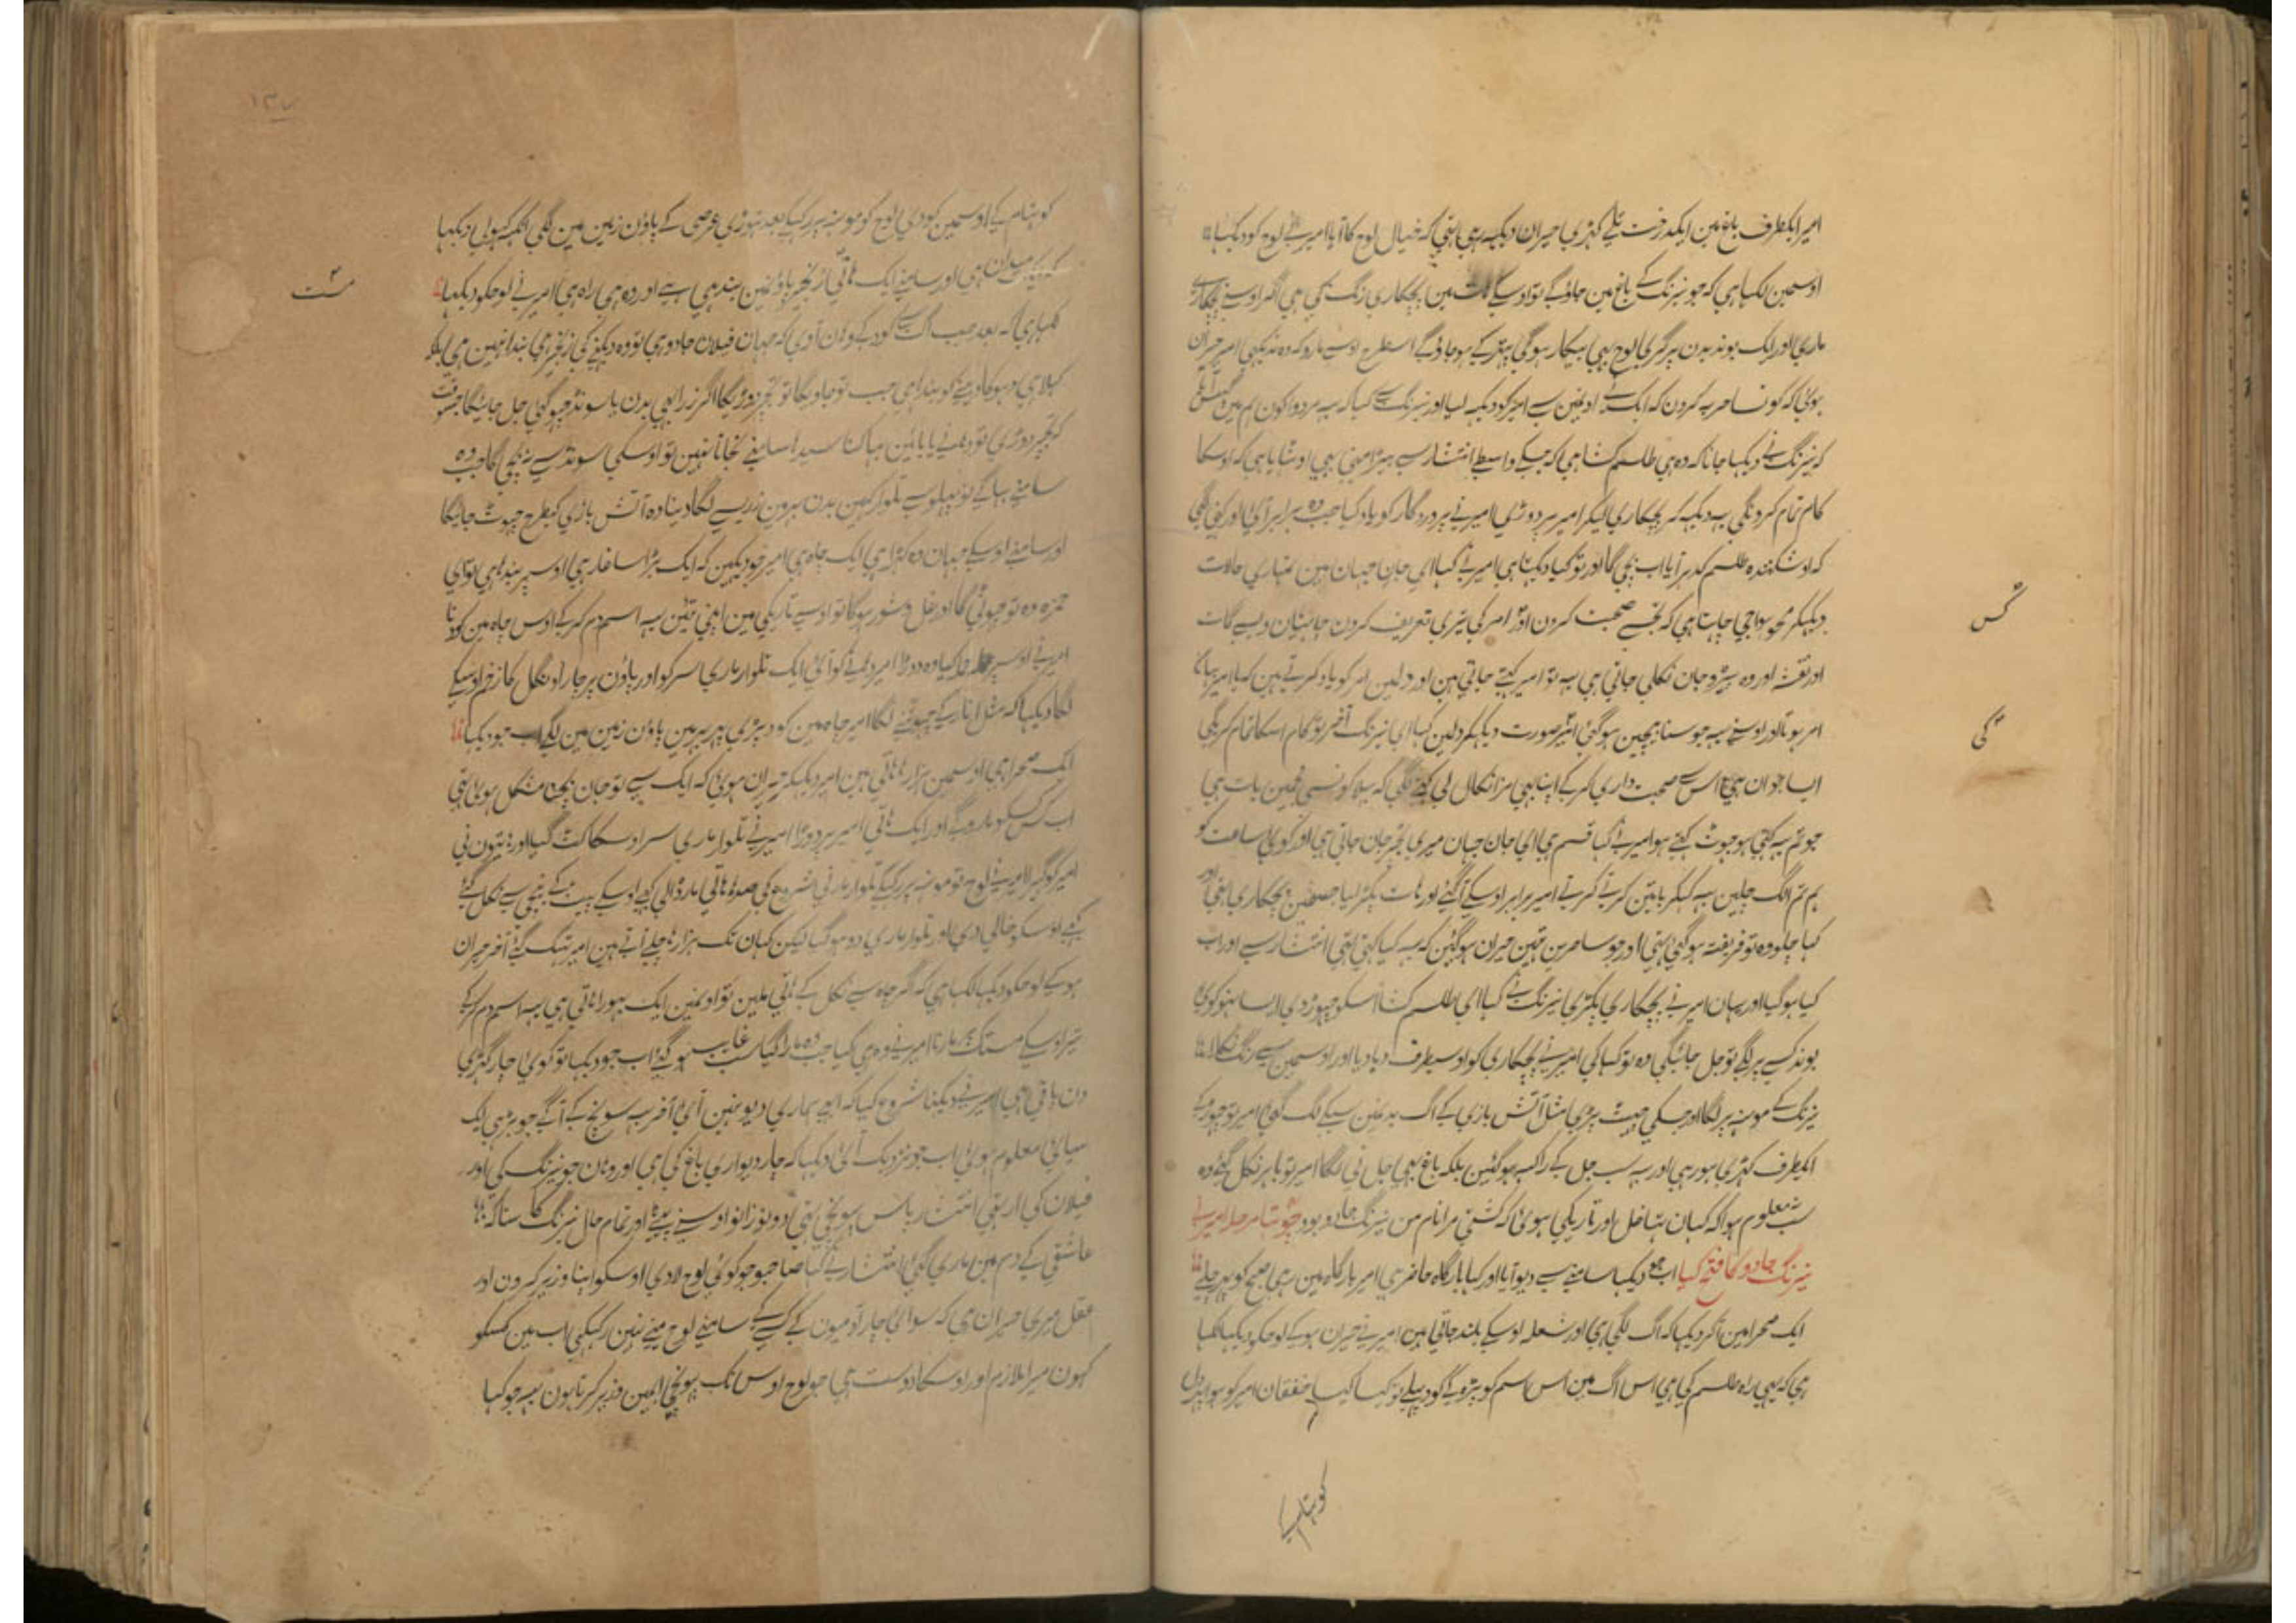 امیر ایکطرف باغ مین ایکدرخت تلی کهڑی حیران دیکهه رہی تهی که خیال لوح کا آیا امیر نے لوح کو دیکها
اوسمین لکها ہی که جو نیرنگ کے باغ مین جاؤگے تو اوسکے ہات مین پچکاری رنگ کی ہی اگر اوسنے پچکاری
ماری اور ایک بوند بدن پر گری لوح بهی بیکار ہوگی پتهر کے ہو جاؤگے اسطرح اوسے مارو که وه نه دیکهی امیر حیران
ہوئی که کونسا حربه کرون که ایک نے اونمین سے امیر کو دیکهه لیا اور نیرنگ سے کہا که یه مردوا کون ہم مین
که نیرنگ نے دیکها جانا که وه ہی طلسم کشا ہی که جسکے واسطے انتشار نے بیڑا مینی بهی اوٹهایا ہی که اوسکا
کام تمام کردنگی یه دیکهه کر پچکاری لیکر امیر پر دوڑی امیر نے پروردگار کو یاد کیا جب وه برابر آئی اور کهنی لگی
که او شکننده طلسم کدہر آیا اب بچی گا اور تو کیا دیکهتا ہی امیر نے کہا ای جان جہان مین تمہاری حالات
دیکهکر محو ہوا جی چاہتا ہی که تجسے صحبت کرون اور امر کی تیری تعریف کرون
اور نقشه اور وه بیڑه جان نکلی جاتی ہی یه تو امیر کہتے جاتی ہین اور دلمین امر کو یاد کرتے ہین که یا امیر یہان
امر ہوتا اور اوسنے یه جو سنا بیچین ہوگئی امیر صورت دیکهکر دلمین کہا ای نیرنگ آخر تو کام اسکا تمام کریگی
ایسا جوان ہی اس سے صحبت داری کر کے اپنا بهی مزا نکال لی کهنے لگی که بهلا کونسی مجمین بات ہی
جو تم یه کہتی ہو جهوٹ کہتے ہو امیر نے کہا قسم ہی ای جان جہان میری تجپر جان جاتی ہی اور کوئی ساعت کو
ہم تم الگ چلین یه کہکر باتین کرتے کرتے امیر برابر اوسکے آگئے اور ہات پکڑ لیا جسمین پچکاری تهی اور
کہا چلو وه تو فریفته ہوگئی تهی اور جو ساحرین تهین حیران ہوگئین که یه کیا کہتی تهی انتشار سے اور اب
کیا ہوگیا اور یہان امیر نے پچکاری پکڑی نیرنگ نے کہا ای طلسم کشا اسکو چهوڑ دی ایسا نہو کوئی
بوند کسے پر لگے تو جل جائیگی وه تو کہا کی امیر نے پچکاری کو اوسیطرف دبا دیا اور اوسمین سے رنگ نکلا
نیرنگ کے مونہه پر لگا اور جسکی چهیٹ پڑی مثل آتش بازی کے آگ بدنمین سبکے لگ گئی امیر تو چهوڑ کے
ایکطرف کهڑی ہو رہی اور یه سب جل کے راکهه ہوگئین بلکه باغ بهی جل نی لگا امیر تو باہر نکل گئے وه
سب معلوم ہوا که کہان تها غل اور تاریکی ہوئی که کشتی مرا نام من نیرنگ جادو بود چوتها مرحله امیر نے
نیرنگ جادو کا فتح کیا اب جو دیکها سامنے سے دیو آیا اور کہا بارگاه حاضر ہی امیر بارگاه مین رہی صبح کو پهر چلے
ایک صحرا مین آکر دیکها که آگ لگی ہی اور شعله اوسکے بلند جاتی ہین امیر نے حیران ہوکے لوحکو دیکها لکها
ہی که یهی راه طلسم کی ہی اس آگ مین اس اسم کو پڑه کے کود پہلے تو کہا کیا خفقان امیر کو ہوا پهر دل
کس
کی
کو تهام کے
١٣٧
کو تهام کے اوسمین کودی لوح کو مونہه پر رکهے بعد تهوڑی عرصی کے پاؤن زمین مین لگی آنکهه کهولی دیکها
که ایک میدان ہی اور سامنے ایک ہاتی زنجیر پاؤنمین بندہی ہے اور وه ہی راه ہی امیر نے لوحکو دیکها
لکها ہی که بعد جب آگ سے کود کے وہان آوی که جہان فیلان جادو ہی تو وه دیکهنے کی زنجیر ہی بندہا نہین ہی بلکه
کهلا ہی دہوکا دینے کو بندہا ہی جب تو جاویگا تو تجپر دوڑیگا اگر ذرا بهی بدن یا سونڈ چهو گئی جل جائیگا جسوقت
که تجپر دوڑی تو دہنے یا بائین بهاگنا سیدہا سامنے نجانا نہین تو اوسکی سونڈ سے نه بچی گا جب وه
سامنے بهاگے تو پہلو سے تلوار کہین بدن پر ون زور سے لگا دینا وه آتش بازی کیطرح چهوٹ جائیگا
اور سامنے اوسکے جہان وه کهڑا ہی ایک چاه ہی امیر خود یکہین که ایک بڑا سا غار ہی اوسپر بندہا ہی تو ای
حمزه وه تو چهوٹی گا اور غل و شور ہوگا تو اوسے تاریکی مین اپنی تئین یه اسم دم کر کے اوس چاه مین کودنا
امیر نے اوسپر حمله کیا وه دوڑا امیر دہنے کو آئی ایک تلوار ماری سر کو اور پاؤن پر چار اونگل کا زخم اوسکے
لگا دیکها که مثل انار کے چهوٹنے لگا امیر چاه مین کود پڑی پهر پیر مین پاؤن زمین مین لگے اب جو دیکها
ایک صحرا ہی اوسمین ہزارہا ہاتی ہین امیر دیکهکر حیران ہوئی که ایک سے تو جان بچنا مشکل ہوئی تهی
اب کس کسکو ماروگے اور ایک ہاتی امیر پر دوڑا امیر نے تلوار ماری سر اوسکا کٹ گیا اور ہاتیون نی
امیر کو گهیرا امیر نے لوح تو مونہه پر رکهکے تلوار مارنی شروع کی صدہا ہاتی مار ڈالی کهے اوسکے پیٹ کے نیچی سے نکل گئے
کهے اوسکو خالی دی اور تلوار ماری دو ہوگیا لیکن کہان تک ہزارہا چلے آتے ہین امیر تهک گئے آخر حیران
ہو کے لوحکو دیکها لکها ہی که اگر چاه سے نکل کے ہاتی ملین تو اونمین ایک بهورا ہاتی ہی یه اسم دم کر کے
تیر اوسکے مستک پر مارنا امیر نے وه ہی کیا جب وه مارا گیا سب غایب ہوگئے اب جو دیکها تو کوئی چار گهڑی
دن باقی ہی امیر نے دیکهنا شروع کیا که ابهے ہماری دیو نہین آئی آخر یه سونچ کے آگے جو بڑہی ایک
سیاہی معلوم ہوئی اب جو نزدیک آئی دیکها که چار دیواری باغ کی ہی اور وہان جو نیرنگ کی اور
فیلان کی ارتهی انتشار پاس پہونچی تهی دونو زانو اوسنے پیٹے اور تمام حال نیرنگ کا سنا که
عاشقی کے دم مین ماری گئی انتشار نے کہا صاحبو جو کوئی لوح لادی اوسکو اپنا وزیر کرون اور
عقل میری حیران ہی که سوای چار آدمیون کے کسی کے سامنے لوح مینے نہین رکهی اب مین کسکو
کہون میرا ملازم اور اوسکا دوست ہی جو لوح اوس تک پہونچی ہمین وزیر کرتا ہون یهه جو کہا
مست